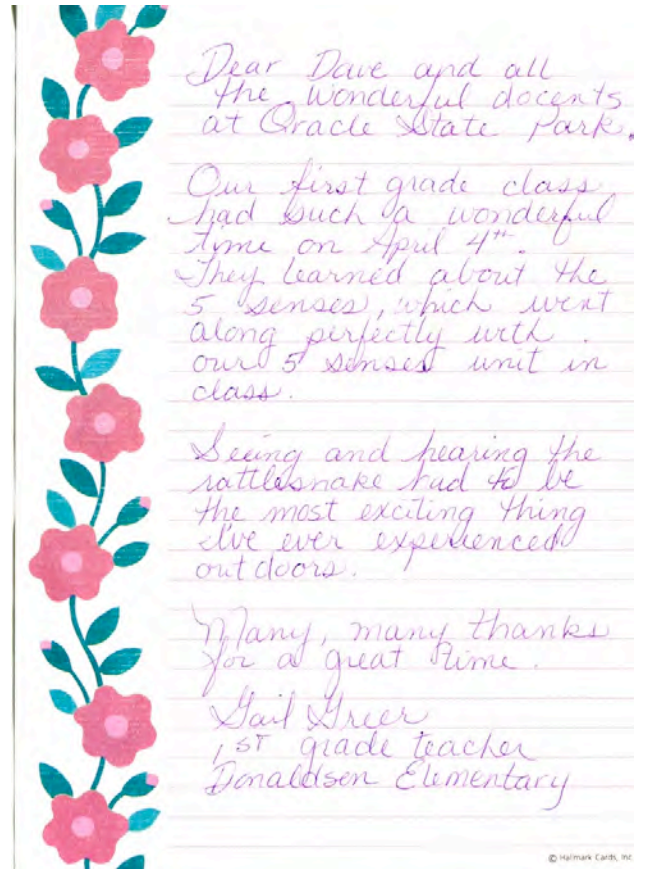 Dear Dave and all
the wonderful docents
at Oracle State Park.
Our first grade class
had such a wonderful
time on April 4th.
They learned about the
5 senses, which went
along perfectly with
our 5 senses unit in
class.
Seeing and hearing the
rattlesnake had to be
the most exciting thing
I've ever experienced
outdoors.
Many, many thanks
for a great time.
Gail Greer
1st grade teacher
Donaldson Elementary
© Hallmark Cards, Inc.